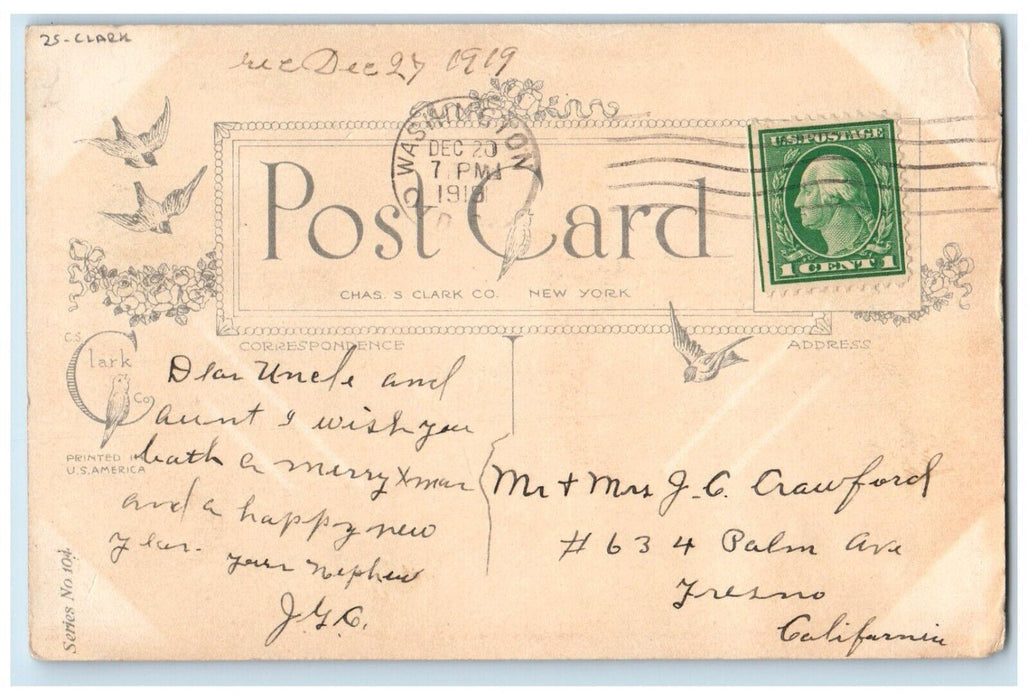 25-CLARK
rec Dec 27 1919
WASHINGTON
DEC 20
7 PM
1919
D
U.S. POSTAGE
1 CENT 1
Post Card
CHAS. S CLARK CO. NEW YORK
CORRESPONDENCE
ADDRESS
C.S.
Clark
Co
PRINTED IN
U.S. AMERICA
Series No 104
Dear Uncle and
aunt I wish you
both a merry xmas
and a happy new
year.
your nephew
J.G.C.
Mr + Mrs J. C. Crawford
# 634 Palm Ave
Fresno
California